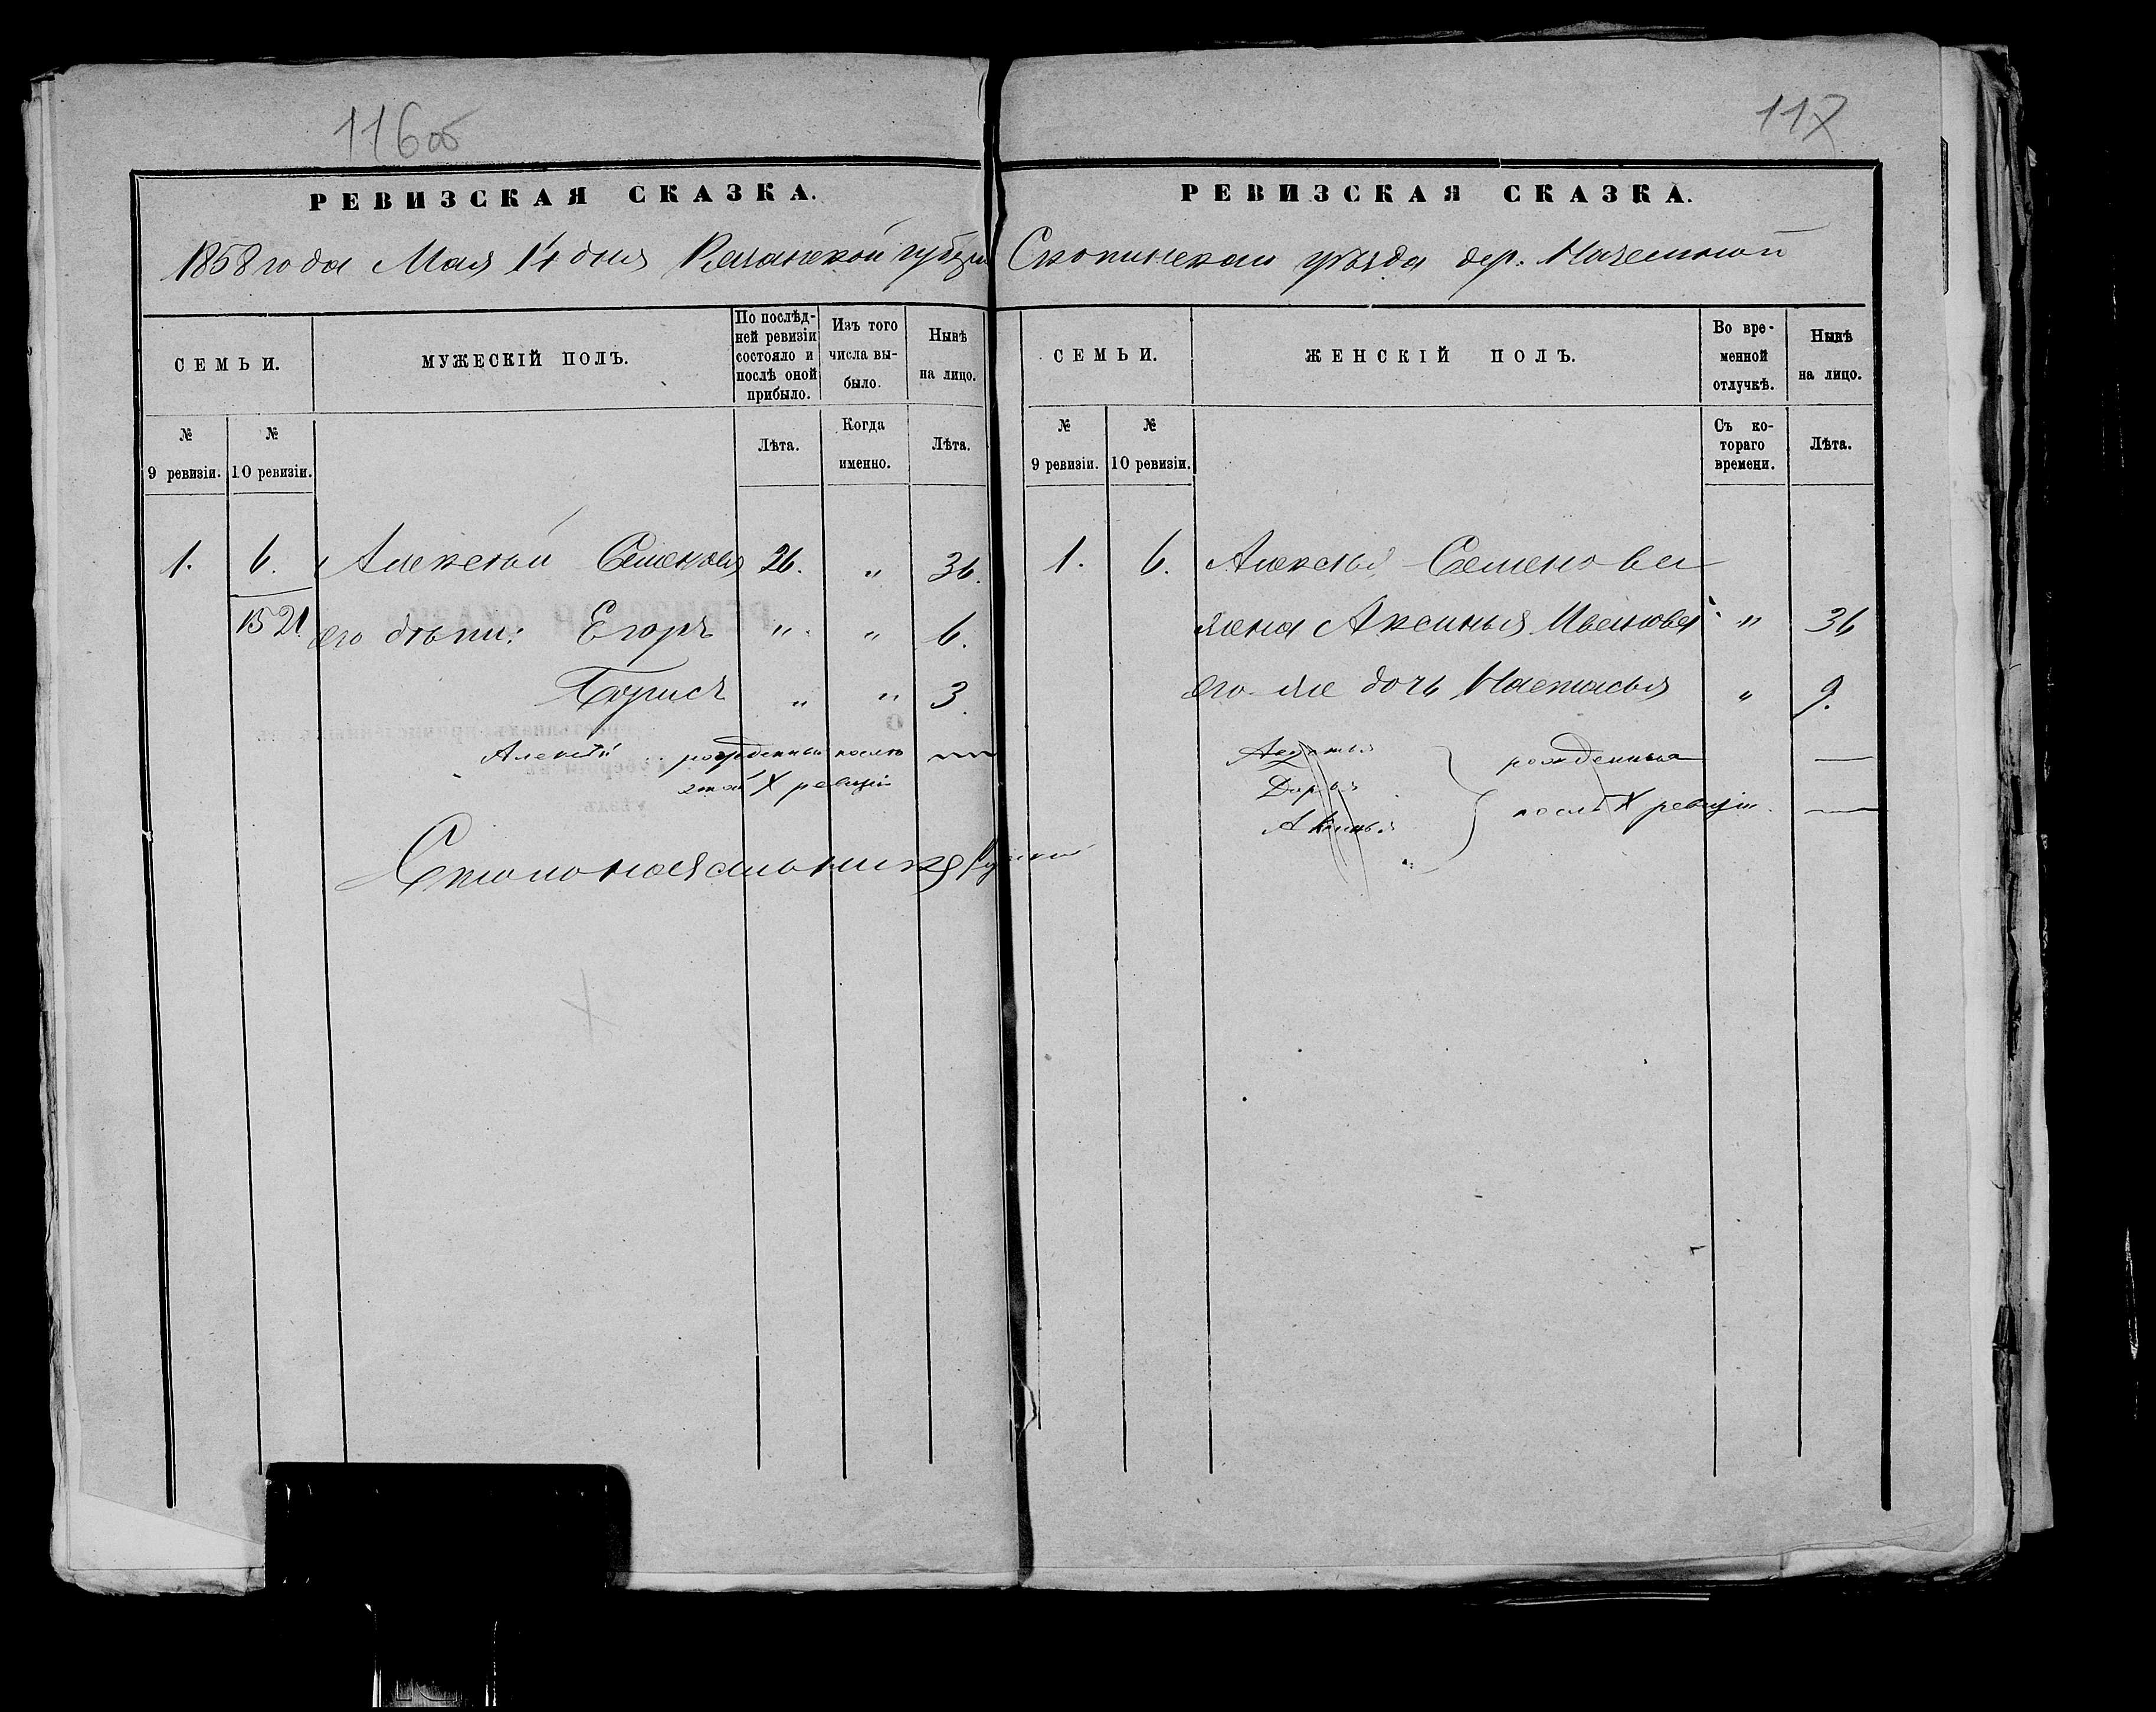 116об
РЕВИЗСКАЯ СКАЗКА.
1858 года Мая 14 дня Рязанской губерн
СЕМЬИ.
МУЖЕСКІЙ ПОЛЪ.
По послѣд-
ней ревизіи
состояло и
послѣ оной
прибыло.
Изъ того
числа вы-
было.
Нынѣ
на лицо.
№
9 ревизіи.
№
10 ревизіи.
Лѣта.
Когда
именно.
Лѣта.
1. 6. Алексѣй Семеновъ 26. " 36.
1521 его дѣти: Егоръ " " 6.
Борисъ " " 3.
Алексѣй рожденный послѣ
X ревизіи
117
РЕВИЗСКАЯ СКАЗКА.
Скопинскаго уѣзда дер.
СЕМЬИ.
ЖЕНСКІЙ ПОЛЪ.
Во вре-
менной
отлучкѣ.
Нынѣ
на лицо.
№
9 ревизіи.
№
10 ревизіи.
Съ ко-
тораго
времени.
Лѣта.
1. 6. Алексѣя Семенова
жена Аксинья Иванова " 36
его же дочь Настасья " 9.
рожденныя —
Дарья
послѣ X ревизіи —